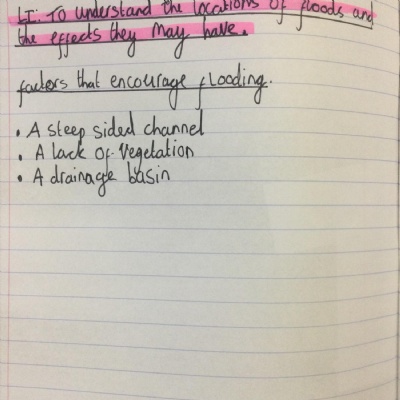 LI: To understand the locations of floods and
the effects they may have.
factors that encourage flooding.
• A steep sided channel
• A lack of vegetation
• A drainage basin